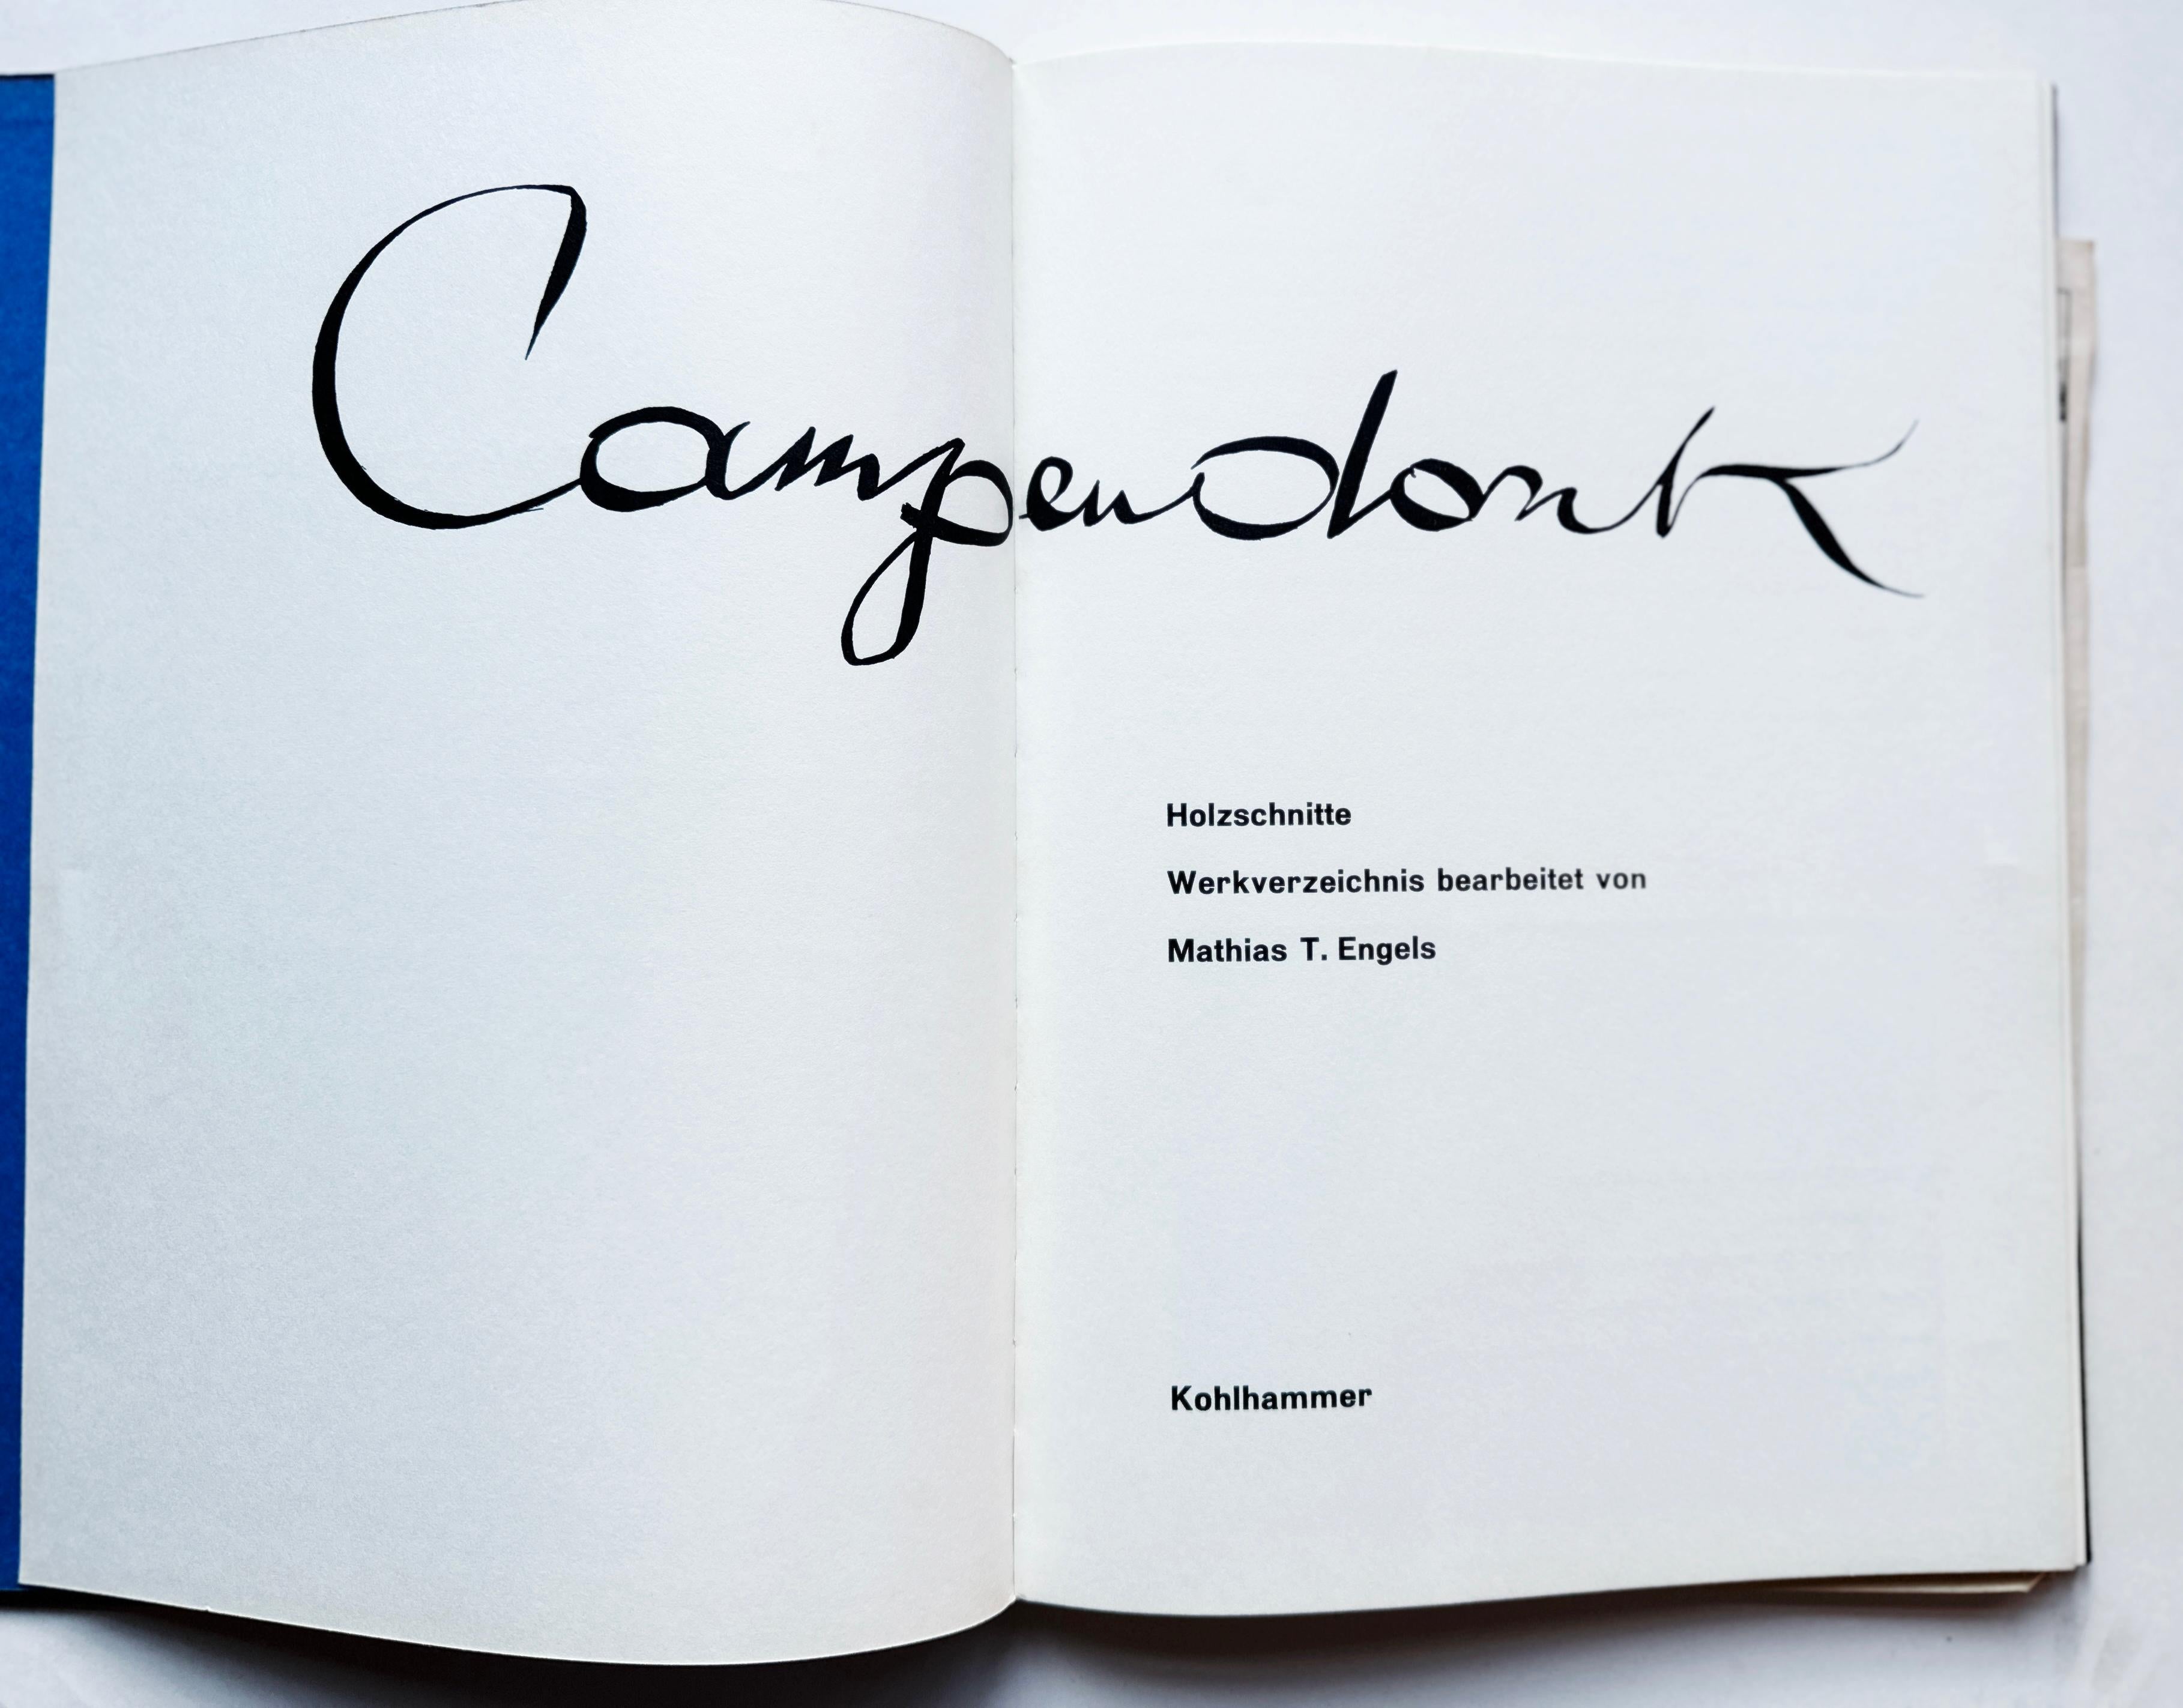 Campendonk
Holzschnitte
Werkverzeichnis bearbeitet von
Mathias T. Engels
Kohlhammer